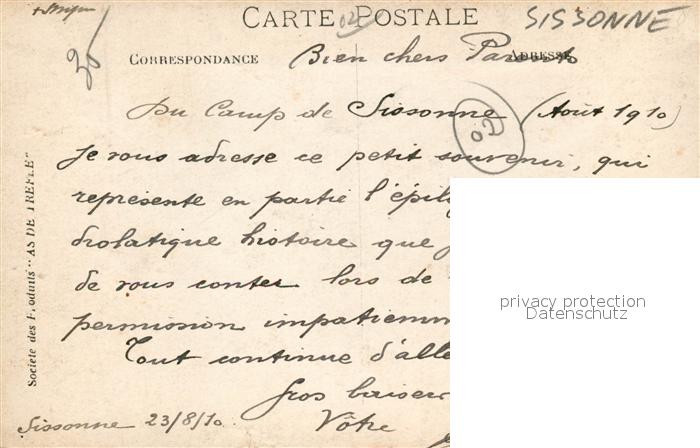 CARTE POSTALE
SISSONNE
20
02
CORRESPONDANCE
ADRESSE
Bien chers Parents
Du Camp de Sissonne (Août 1910)
02
Je vous adresse ce petit souvenir, qui
représente en partie l'épil
drolatique histoire que
de vous conter lors de
permission impatiemm
Tout continue d'alle
Gros baiser
Vôtre
Sissonne 23/8/10
Société des Produits "AS DE TREFLE"
privacy protection
Datenschutz